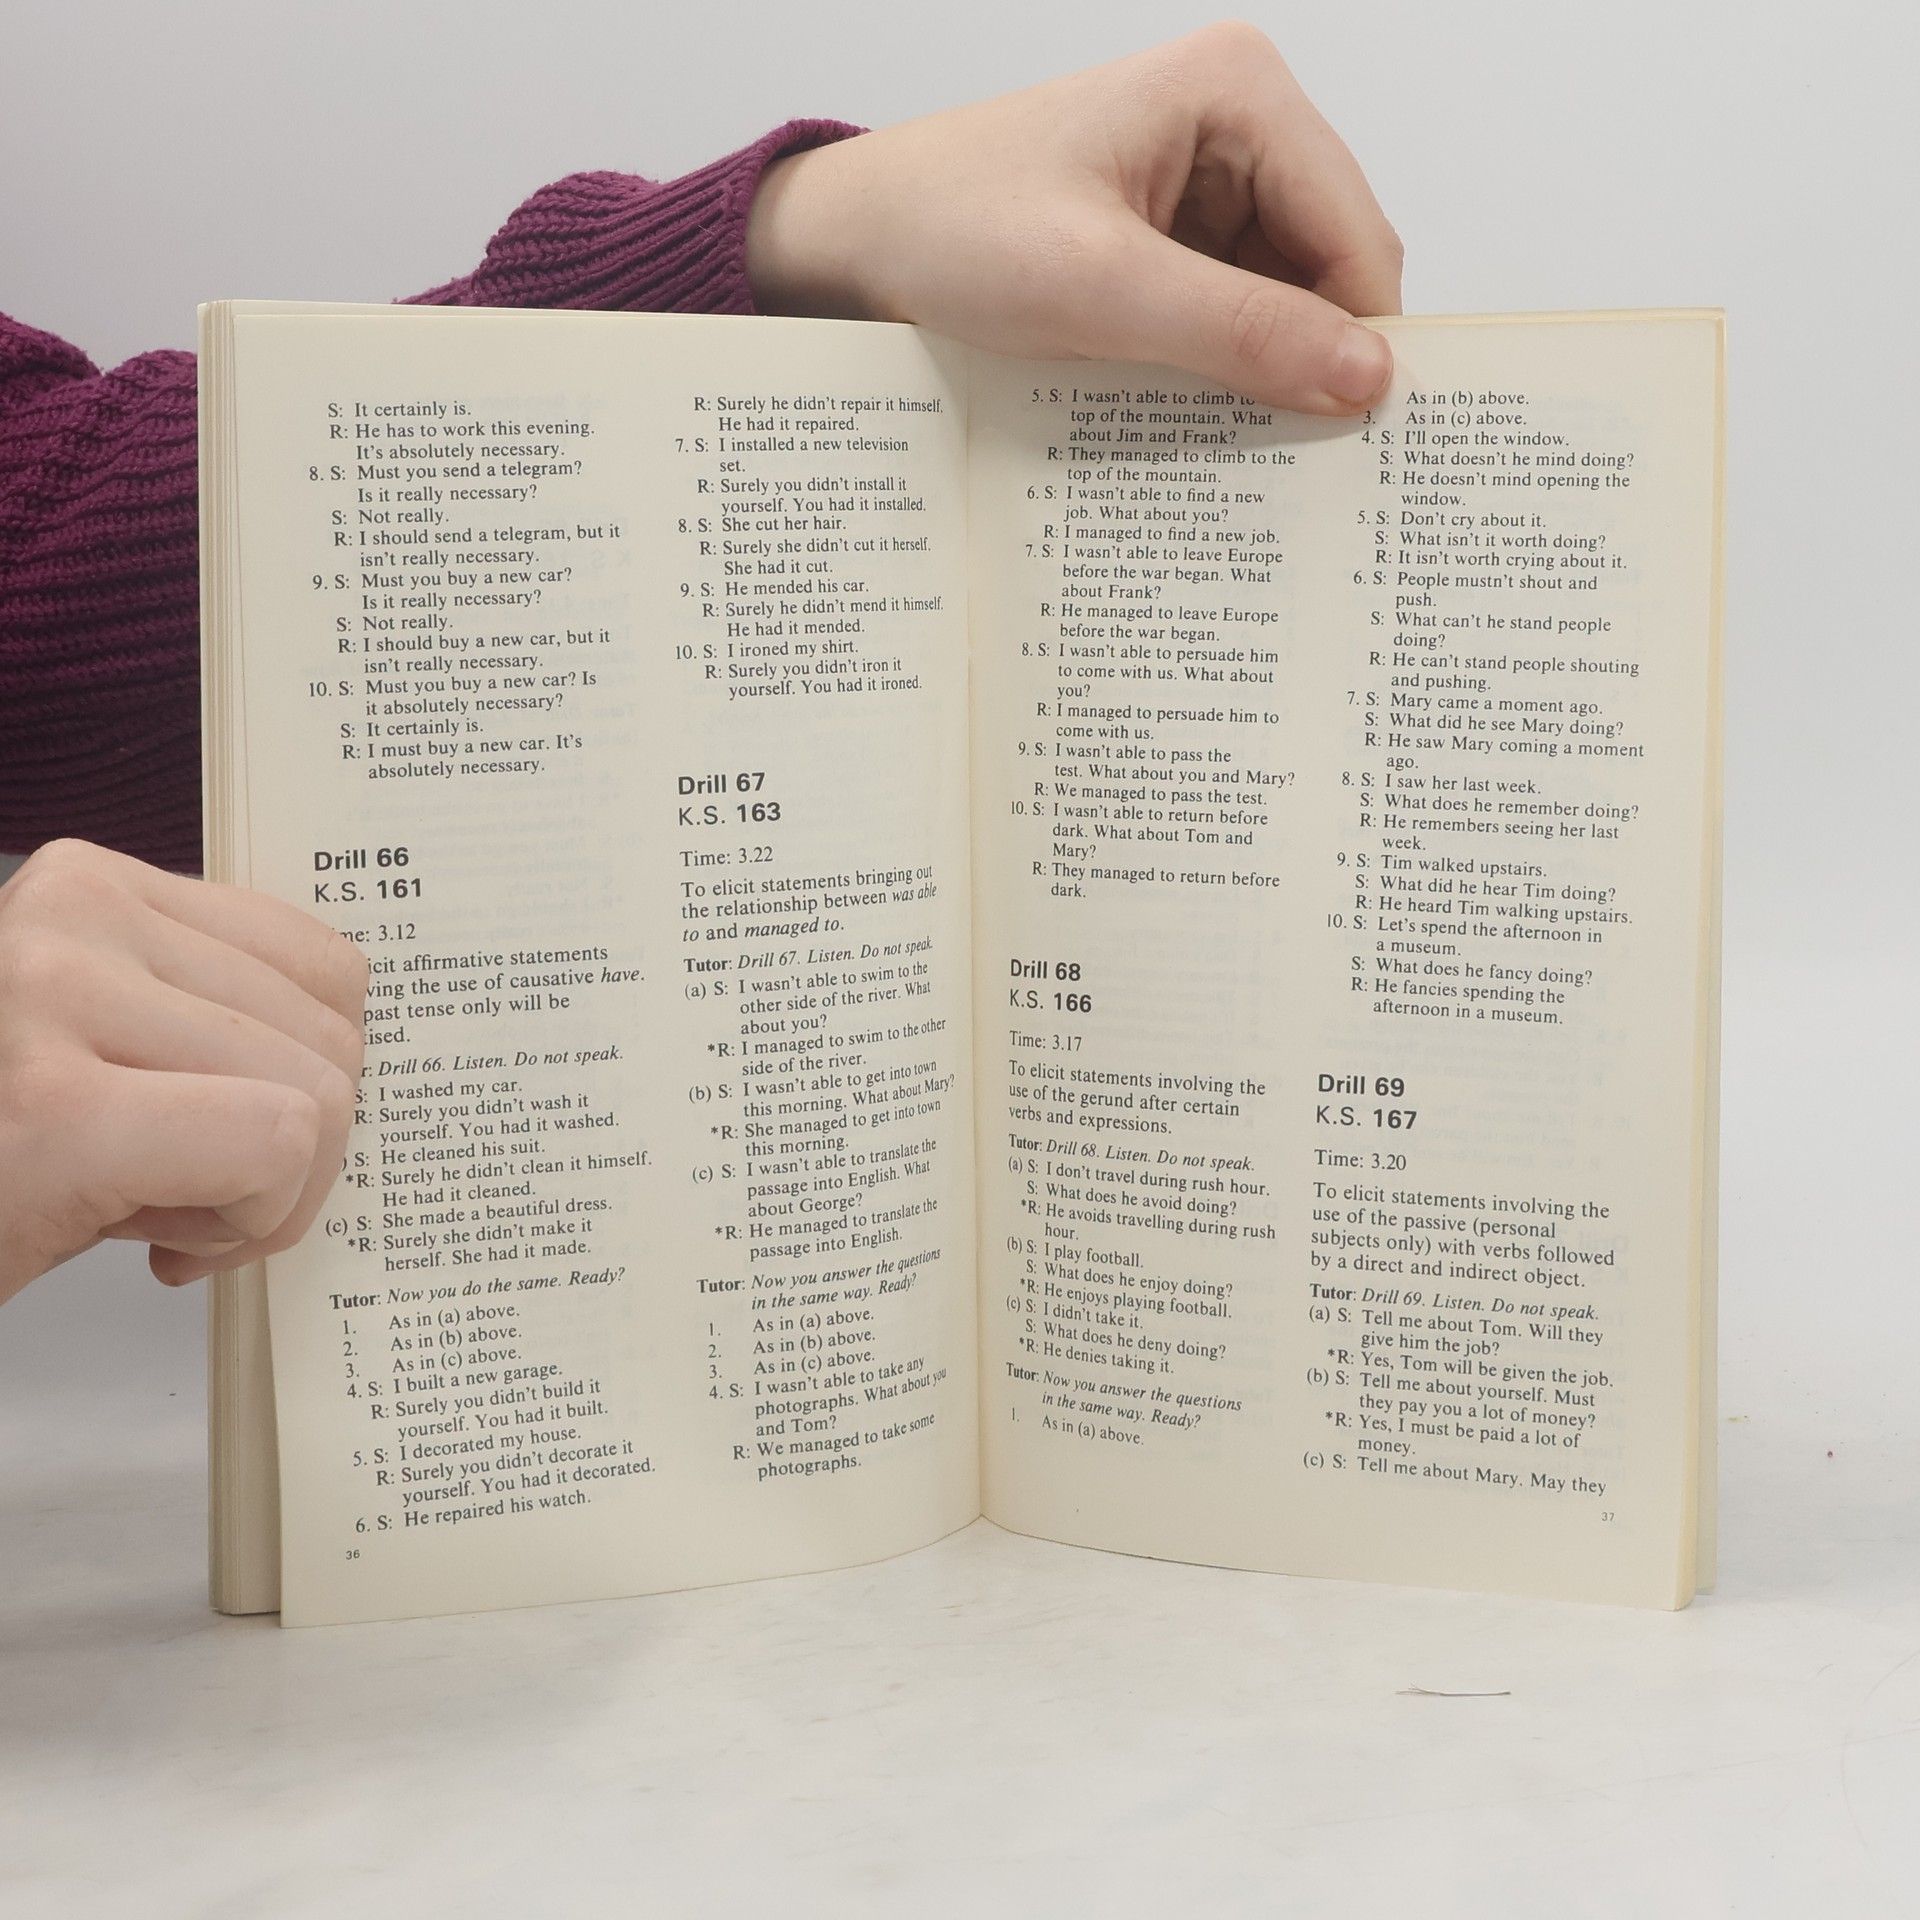 S: It certainly is.
R: He has to work this evening.
It's absolutely necessary.
8. S: Must you send a telegram?
Is it really necessary?
S: Not really.
R: I should send a telegram, but it
isn't really necessary.
9. S: Must you buy a new car?
Is it really necessary?
S: Not really.
R: I should buy a new car, but it
isn't really necessary.
10. S: Must you buy a new car? Is
it absolutely necessary?
S: It certainly is.
R: I must buy a new car. It's
absolutely necessary.
Drill 66
K.S. 161
me: 3.12
icit affirmative statements
ving the use of causative have.
past tense only will be
ised.
r: Drill 66. Listen. Do not speak.
S: I washed my car.
R: Surely you didn't wash it
yourself. You had it washed.
) S: He cleaned his suit.
*R: Surely he didn't clean it himself.
He had it cleaned.
(c) S: She made a beautiful dress.
*R: Surely she didn't make it
herself. She had it made.
Tutor: Now you do the same. Ready?
1. As in (a) above.
2. As in (b) above.
3. As in (c) above.
4. S: I built a new garage.
R: Surely you didn't build it
yourself. You had it built.
5. S: I decorated my house.
R: Surely you didn't decorate it
yourself. You had it decorated.
6. S: He repaired his watch.
36
R: Surely he didn't repair it himself.
He had it repaired.
7. S: I installed a new television
set.
R: Surely you didn't install it
yourself. You had it installed.
8. S: She cut her hair.
R: Surely she didn't cut it herself.
She had it cut.
9. S: He mended his car.
R: Surely he didn't mend it himself.
He had it mended.
10. S: I ironed my shirt.
R: Surely you didn't iron it
yourself. You had it ironed.
Drill 67
K.S. 163
Time: 3.22
To elicit statements bringing out
the relationship between was able
to and managed to.
Tutor: Drill 67. Listen. Do not speak.
(a) S: I wasn't able to swim to the
other side of the river. What
about you?
*R: I managed to swim to the other
side of the river.
(b) S: I wasn't able to get into town
this morning. What about Mary?
*R: She managed to get into town
this morning.
(c) S: I wasn't able to translate the
passage into English. What
about George?
*R: He managed to translate the
passage into English.
Tutor: Now you answer the questions
in the same way. Ready?
1. As in (a) above.
2. As in (b) above.
3. As in (c) above.
4. S: I wasn't able to take any
photographs. What about you
and Tom?
R: We managed to take some
photographs.
5. S: I wasn't able to climb to
top of the mountain. What
about Jim and Frank?
R: They managed to climb to the
top of the mountain.
6. S: I wasn't able to find a new
job. What about you?
R: I managed to find a new job.
7. S: I wasn't able to leave Europe
before the war began. What
about Frank?
R: He managed to leave Europe
before the war began.
8. S: I wasn't able to persuade him
to come with us. What about
you?
R: I managed to persuade him to
come with us.
9. S: I wasn't able to pass the
test. What about you and Mary?
R: We managed to pass the test.
10. S: I wasn't able to return before
dark. What about Tom and
Mary?
R: They managed to return before
dark.
Drill 68
K.S. 166
Time: 3.17
To elicit statements involving the
use of the gerund after certain
verbs and expressions.
Tutor: Drill 68. Listen. Do not speak.
(a) S: I don't travel during rush hour.
S: What does he avoid doing?
*R: He avoids travelling during rush
hour.
(b) S: I play football.
S: What does he enjoy doing?
*R: He enjoys playing football.
(c) S: I didn't take it.
S: What does he deny doing?
*R: He denies taking it.
Tutor: Now you answer the questions
in the same way. Ready?
1. As in (a) above.
As in (b) above.
3. As in (c) above.
4. S: I'll open the window.
S: What doesn't he mind doing?
R: He doesn't mind opening the
window.
5. S: Don't cry about it.
S: What isn't it worth doing?
R: It isn't worth crying about it.
6. S: People mustn't shout and
push.
S: What can't he stand people
doing?
R: He can't stand people shouting
and pushing.
7. S: Mary came a moment ago.
S: What did he see Mary doing?
R: He saw Mary coming a moment
ago.
8. S: I saw her last week.
S: What does he remember doing?
R: He remembers seeing her last
week.
9. S: Tim walked upstairs.
S: What did he hear Tim doing?
R: He heard Tim walking upstairs.
10. S: Let's spend the afternoon in
a museum.
S: What does he fancy doing?
R: He fancies spending the
afternoon in a museum.
Drill 69
K.S. 167
Time: 3.20
To elicit statements involving the
use of the passive (personal
subjects only) with verbs followed
by a direct and indirect object.
Tutor: Drill 69. Listen. Do not speak.
(a) S: Tell me about Tom. Will they
give him the job?
*R: Yes, Tom will be given the job.
(b) S: Tell me about yourself. Must
they pay you a lot of money?
*R: Yes, I must be paid a lot of
money.
(c) S: Tell me about Mary. May they
37